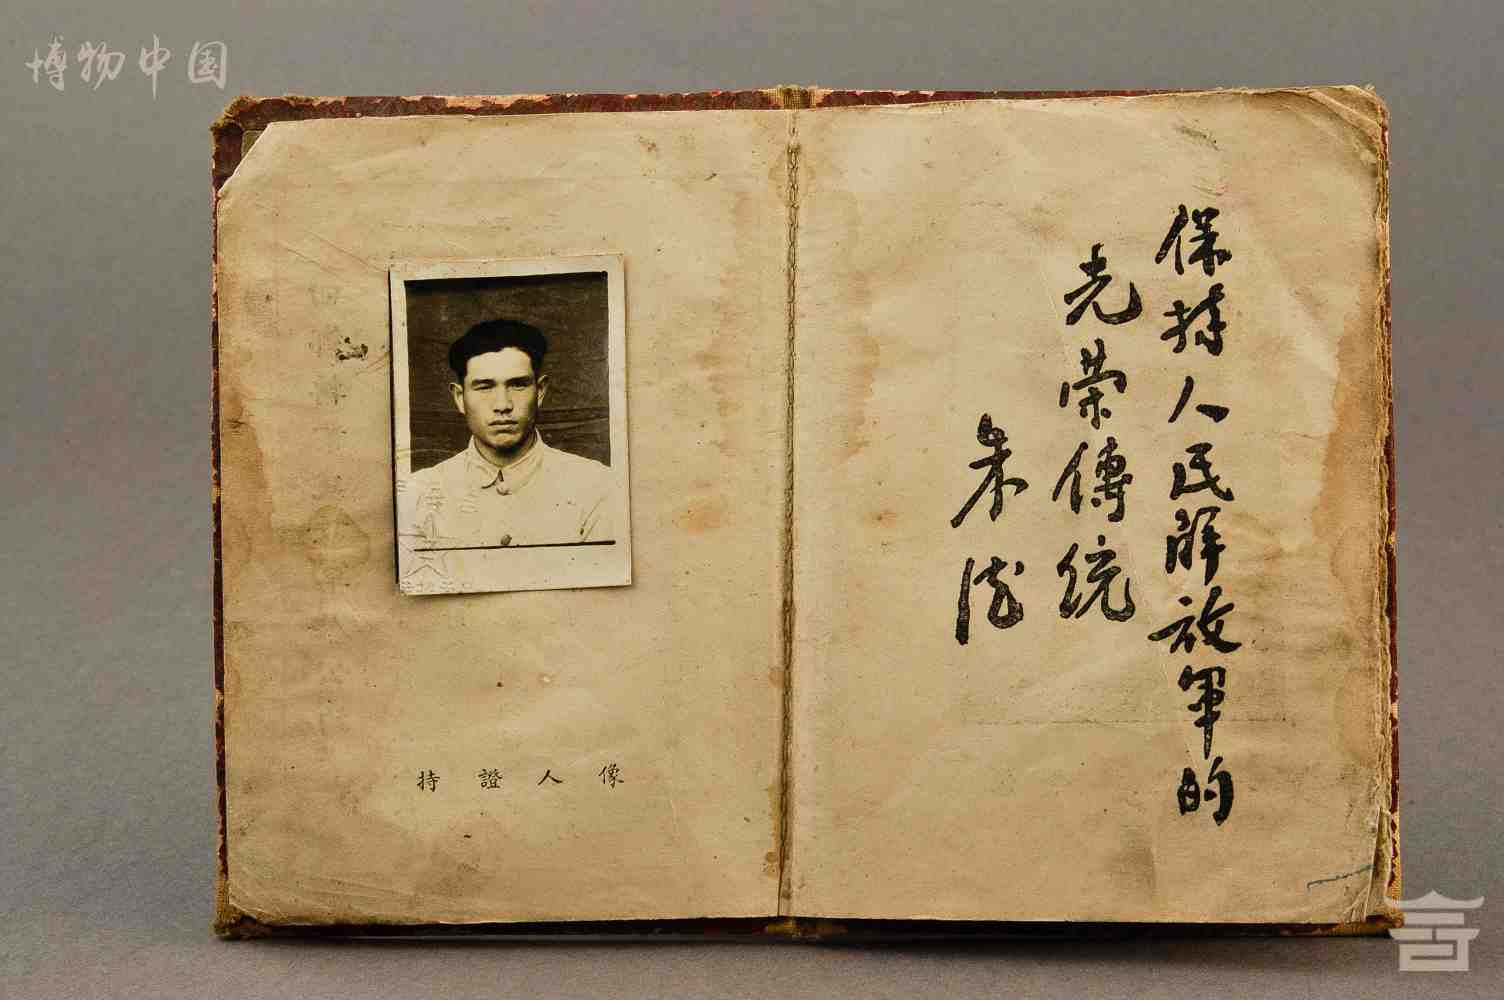 博物中国
保持人民解放军的
光荣傳統
朱德
持證人像